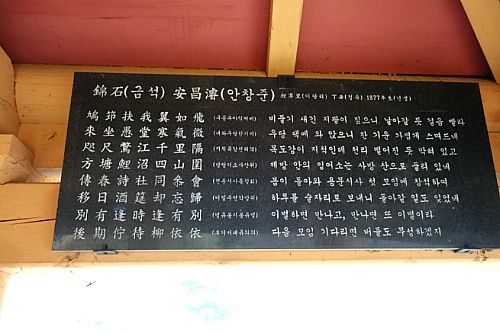 錦石(금석) 安昌濬(안창준) 1877年生(년생)
鳩節扶我翼如飛 (구절부아익여비) 비둘기 새긴 지팡이 짚으니 날아갈 듯 걸음 빨라
來坐愚堂寒氣微 (내좌우당한기미) 우당 댁에 와 앉으니 찬 기운 가볍게 스며드네
咫尺江千里隔 지척인데 천리 떨어진 듯 막혀 있고
方塘鯉沼四山圍 (방당리소사산위) 제방 안의 잉어소는 사방 산으로 둘러 있네
傳春詩社同參會 봄이 돌아와 용문시사 첫 모임에 참석하여
移日酒筵却忘歸 (이일주연각망귀) 하루를 술자리로 보내니 돌아갈 일도 잊었네
別有逢時逢有別 (별유봉시봉유별) 이별하면 만나고, 만나면 또 이별이라
後期佇待柳依依 (후기저대유의의) 다음 모임 기다리면 버들도 무성하겠지